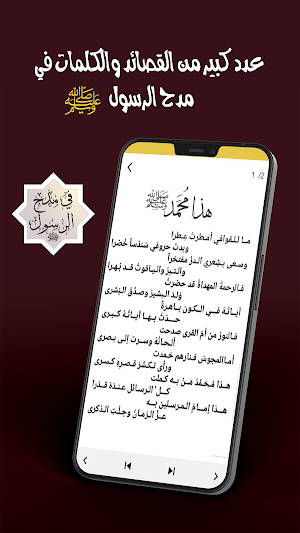 عدد كبير من القصائد والكلمات في
مدح الرسول ﷺ
في مدح
الرسول
ﷺ
1 /2
ﷺ
هذا مُحَمَّد
ما للقوافي أمطرتْ عِطرا
وبدتْ حروفي سُندُساً خُضرا
وسعى بشِعري الدرُّ مفتخراً
والتبرُ والياقوتُ قد بَهرا
فالرحمةُ المهداةُ قد حضرتْ
وَلدَ البشيرُ وصدِّقْ البُشرى
آياتُهُ في الكون باهرةٌ
حدّثْ بها آياتُهُ كُبرى
فالنور من أمّ القرى صدحت
ألحانُهُ وسرتْ إلى بصرى
أما المجوسُ فنارهم خمدت
ورأى نكسْرُ قصره كسرى
هذا مُحمّدٌ من به كملت
كلُّ الرسائل عندهُ قدرا
هذا إمامُ المرسلين به
عزَّ الزمانُ وجلّتِ الذكرى